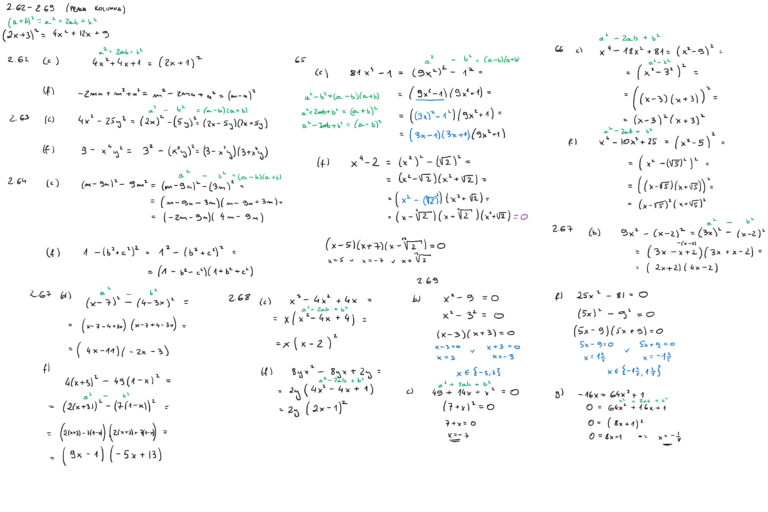 2.62 - 2.69 (PRAWA KOLUMNA)
(a+b)² = a² - 2ab + b²
(2x+3)² = 4x² + 12x + 9
a² + 2ab + b²
2.62 (c) 4x² + 4x + 1 = (2x+1)²
(f) -2mn + m² + n² = m² - 2mn + n² = (m-n)²
a² - b² = (a-b)(a+b)
2.63 (c) 4x² - 25y² = (2x)² - (5y)² = (2x-5y)(2x+5y)
(f) 9 - x⁴y² = 3² - (x²y)² = (3-x²y)(3+x²y)
a² - b² = (a-b)(a+b)
2.64 (c) (m-9n)² - 9m² = (m-9n)² - (3m)² =
= (m-9n-3m)(m-9n+3m) =
= (-2m-9n)(4m-9n)
(f) 1 - (b²+c²)² = 1² - (b²+c²)² =
= (1-b²-c²)(1+b²+c²)
65
a² - b² = (a-b)(a+b)
(c) 81x⁴ - 1 = (9x²)² - 1² =
a²-b²=(a-b)(a+b)
= (9x²-1)(9x²+1) =
a²+2ab+b² = (a+b)²
= ((3x)²-1²)(9x²+1) =
a²-2ab+b² = (a-b)²
= (3x-1)(3x+1)(9x²+1)
(f) x⁴-2 = (x²)² - (√2)² =
= (x²-√2)(x²+√2) =
= (x²-(∜2)²)(x²+√2) =
= (x-∜2)(x+∜2)(x²+√2) = 0
x=5 ∨ x=-7 ∨
a² - 2ab + b²
66 c) x⁴ - 18x² + 81 = (x²-9)² =
a²-b²
= (x²-3²)² =
= ((x-3)(x+3))² =
= (x-3)²(x+3)²
a² - 2ab + b²
f) x⁴ - 10x² + 25 = (x²-5)² =
= (x²-(√5)²)² =
= ((x-√5)(x+√5))² =
= (x-√5)²(x+√5)²
a² - b²
2.67 (b) 9x² - (x-2)² = (3x)² - (x-2)²
-(x-2)
= (3x-x+2)(3x+x-2) =
= (2x+2)(4x-2)
a² - b²
2.67 d) (x-7)² - (4-3x)² =
= (x-7-4+3x)(x-7+4-3x) =
= (4x-11)(-2x-3)
f)
4(x+3)² - 49(1-x)² =
a² - b²
= (2(x+3))² - (7(1-x))² =
= (2(x+3)-7(1-x))(2(x+3)+7(1-x)) =
= (9x-1)(-5x+13)
2.68 (c) x³ - 4x² + 4x =
a²-2ab+b²
= x(x²-4x+4) =
= x(x-2)²
(f) 8yx² - 8yx + 2y =
a²-2ab+b²
= 2y(4x²-4x+1)
= 2y(2x-1)²
2.69
b) x² - 9 = 0
x² - 3² = 0
(x-3)(x+3) = 0
x-3=0 ∨ x+3=0
x=3 x=-3
x∈{-3,3}
a² + 2ab + b²
c) 49 + 14x + x² = 0
(7+x)² = 0
7+x=0
x=-7
f) 25x² - 81 = 0
(5x)² - 9² = 0
(5x-9)(5x+9) = 0
5x-9=0 5x+9=0
x=1⅘ ∨ x=-1⅘
x∈{-1⅘, 1⅘}
g) -16x = 64x² + 1
a² + 2ab + b²
0 = 64x² + 16x + 1
0 = (8x+1)²